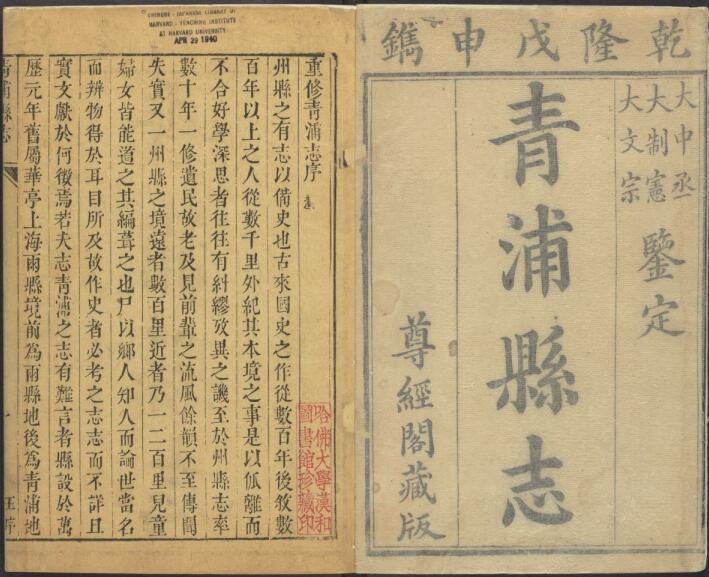 乾隆戊申鐫
大中丞
大制憲
大文宗
鑒定
青浦縣志
尊經閣藏版
CHINESE - JAPANESE LIBRARY OF
HARVARD - YENCHING INSTITUTE
AT HARVARD UNIVERSITY
APR 29 1940
重修青浦志序
州縣之有志以備史也古來國史之作從數百年後敘數
百年以上之人從數千里外紀其本境之事是以佤離而
不合好學深思者往往有糾繆攷異之譏至於州縣志率
數十年一修遺民故老及見前輩之流風餘韻不至傳聞
失實又一州縣之境遠者數百里近者乃一二百里兒童
婦女皆能道之其編葺之也尸以鄉人知人而論世當名
而辨物得於耳目所及故作史者必考之志志而不詳且
實文獻於何徵焉若夫志青浦之志有難言者縣設於萬
歷元年舊屬華亭上海兩縣境前為兩縣地後為青浦地
青浦縣志
一
王序
哈佛大學漢和
圖書館珍藏印